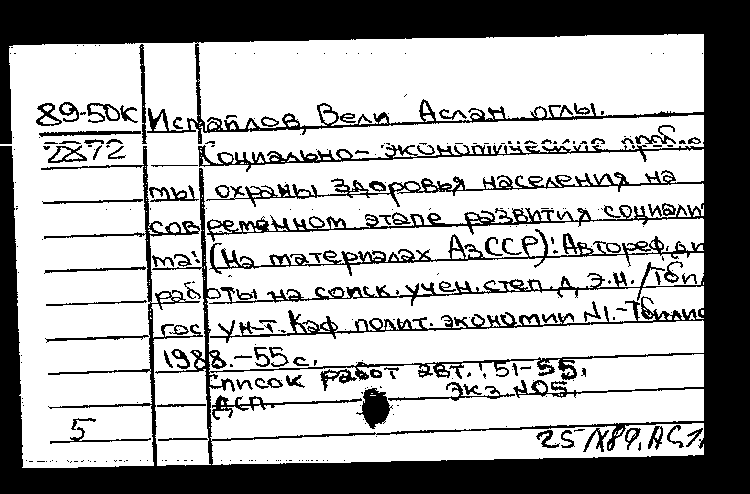 89-50К Исмайлов, Вели Аслан оглы.
2872 Социально-экономические пробле
мы охраны здоровья населения на
современном этапе развития социали
ма: (На материалах АзССР): Автореф. ди
работы на соиск. учен. степ. д. э. н. / Тбил
гос. ун-т. Каф. полит. экономии N1.-Тбилис
1988.-55 с.
Список работ авт.: 51-55.
ДСП. Экз. N05.
5
25/X89.